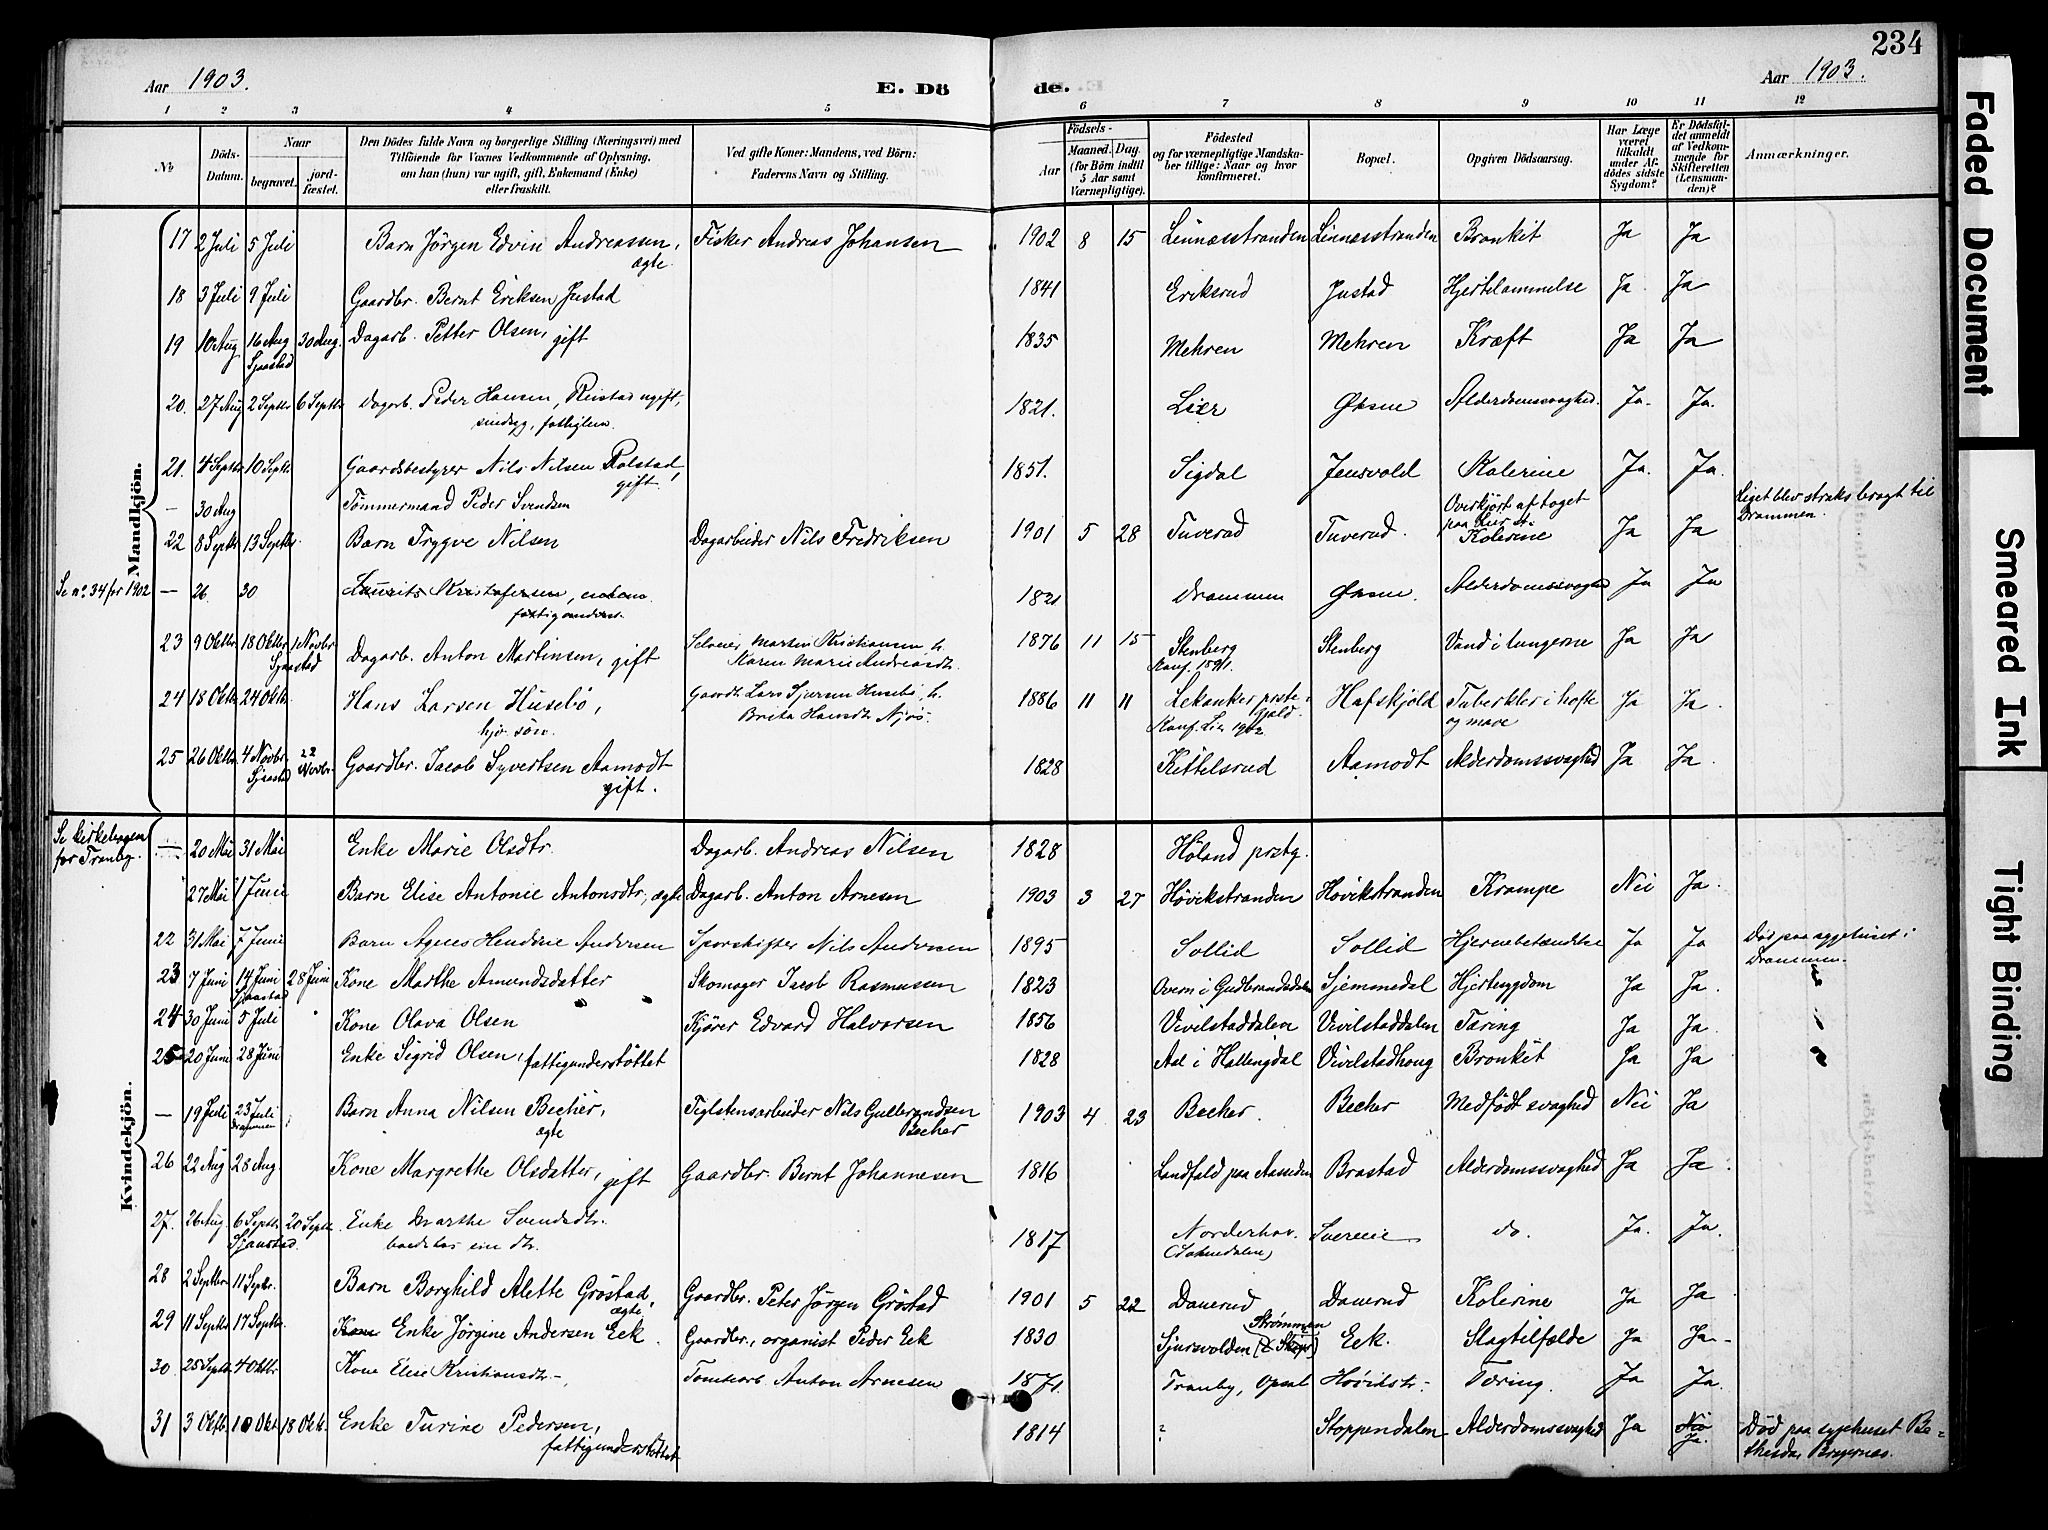 234
Aar 1903.
E. Dö
de.
Aar 1903.
1 2 3 4 5 6 7 8 9 10 11 12
№
Döds-Datum.
Naar
begravet.
jord-fæstet.
Den Dödes fulde Navn og borgerlige Stilling (Næringsvei) med
Tilföiende for Voxnes Vedkommende af Oplysning,
om han (hun) var ugift, gift, Enkemand (Enke)
eller fraskilt.
Ved gifte Koner: Mandens, ved Börn:
Faderens Navn og Stilling.
Födsels-
Aar
Maaned. Dag.
(for Börn indtil
5 Aar samt
Værnepligtige).
Födested
og for værnepligtige Mandska-
ber tillige: Naar og hvor
konfirmeret.
Bopæl.
Opgiven Dödsaarsag.
Har Læge
været
tilkaldt
under Af-
dödes sidste
Sygdom?
Er Dödsfal-
det anmeldt
af Vedkom-
mende for
Skifteretten
(Lensman-
den)?
Anmærkninger.
Mandkjön.
17 2 Juli 5 Juli Barn Jörgen Edvin Andreassen, Fisker Andreas Johansen 1902 8 15 Linnæsstranden Linnæsstranden Bronkit Ja Ja
ægte.
18 3 Juli 9 Juli Gaardbr. Bernt Eriksen Justad 1841 Eriksrud Justad Hjertelammelse Ja. Ja
19 10 Aug 16 Aug 30 Aug. Dagarb. Petter Olsen, gift 1835 Mehren Mehren Kræft Ja Ja
Sjaastad
20. 27 Aug 2 Septbr 6 Septbr Dagarb. Peder Hansen, ugift, 1821. Lier Øksne Alderdomssvaghed. Ja. Ja.
sindsyg, fattiglem.
21. 4 Septbr 10 Septbr Gaardsbestyrer Nils Nilsen Rolstad, 1851. Sigdal Jensvold Kolerine Ja. Ja.
gift.
— 30 Aug Tömmermand Peder Svendsen Overkjört af toget Liget blev straks bragt til
paa Lier st. Drammen.
22 8 Septbr 13 Septbr. Barn Trygve Nilsen Dagarbeider Nils Fredriksen 1901 5 28 Tuverud Tuverud. Kolerine Ja Ja
Se nº. 34 for 1902 — 26 30 Laurits Kristofersen, 1821 Drammen Øksne. Alderdomssvaghed Ja Ja
23 9 Oktbr 18 Oktbr 1 Novbr Dagarb. Anton Martinsen, gift Selveier Martin Kristiansen h. 1876 11 15 Stenberg Stenberg Vand i lungerne Ja Ja
Sjaastad Karen Marie Andreasdt. Konf. 1891.
24 18 Oktbr 24 Oktbr. Hans Larsen Husebö, Gaardbr. Lars Husebö, h. 1886 11 11 Lekanker preste- Hafskjold Tuberkler i hofte Ja Ja.
hjv. sön. Brita Hansdt. Njös. gjæld. og mave
Konf. Lier 1902
25 26 Oktbr 4 Novbr. 22 Novbr. Gaardbr. Jacob Syvertsen Aamodt 1828 Kittelsrud Aamodt Alderdomssvaghed Ja Ja.
Sjaastad gift.
Kvindekjön.
Se kirkebogen — 20 Mai 31 Mai Enke Marie Olsdtr. Dagarb. Andreas Nilsen 1828 Höland prstg.
for Tranby.
27 Mai 1 Juni Barn Elise Antonie Antonsdtr., ægte Dagarb. Anton Arnesen 1903 3 27 Høvikstranden Høvikstranden Krampe Nei Ja.
22 31 Mai 7 Juni Barn Agnes Hendrine Andersen Sporskifter Nils Andersen 1895 Sollid Sollid Hjernebetændelse Ja Ja Död paa sygehuset i
Drammen.
23 7 Juni 14 Juni 28 Juni Kone Marthe Amundsdatter Skomager Jacob Rasmussen 1823 Overn i Gudbrandsdalen Sjemmedal Hjertesygdom Ja Ja.
Sjaastad
24 30 Juni 5 Juli Kone Olava Olsen Kjörer Edvard Halvorsen 1856 Vivilstaddalen Vivilstaddalen Tæring Ja Ja.
25 20 Juni 28 Juni Enke Sigrid Olsen, fattigunderstöttet 1828 Aal i Hallingdal Vivilstadhoug Bronkit Ja Ja
— 19 Juli 23 Juli Barn Anna Nilsen Becher, Teglstensarbeider Nils Gulbrandsen 1903 4 23 Becher. Becher Medfödt svaghed Nei Ja
Drammen ægte Becher
26 22 Aug 28 Aug. Kone Margrethe Olsdatter, gift Gaardbr. Bernt Johannesen 1816 Landfald paa Aassiden Brastad Alderdomssvaghed Ja Ja.
27. 26 Aug. 6 Septbr 20 Septbr. Enke Marthe Svendsdtr. 1817 Norderhov. Svereie do. Ja. Ja.
Sjaastad. hos sin dtr.
28 2 Septbr 11 Septbr. Barn Borghild Alette Gröstad, Gaardbr. Peter Jörgen Gröstad 1901 5 22 Dauerud Dauerud Kolerine Ja Ja
ægte
29 11 Septbr 17 Septbr. Kone Enke Jörgine Andersen Eek. Gaardbr., organist Peder Eek 1830 Sjursvolden Strömmen Eek. Slagtilfælde Ja Ja-
30. 25 Septbr. 4 Oktbr Kone Elise Kristiansdtr.-, Tomtearb. Anton Arnesen 1871. Tranby, Opsal Høvikstr-. Tæring. Ja Ja.
31 3 Oktbr. 10 Okt 18 Okt. Enke Turine Pedersen, 1814 ? Stoppendalen Alderdomssvaghed Ja Nei Ja. Död paa sygehuset Be-
fattigunderstöttet thesda, Bragernes.
Faded Document
Smeared Ink
Tight Binding